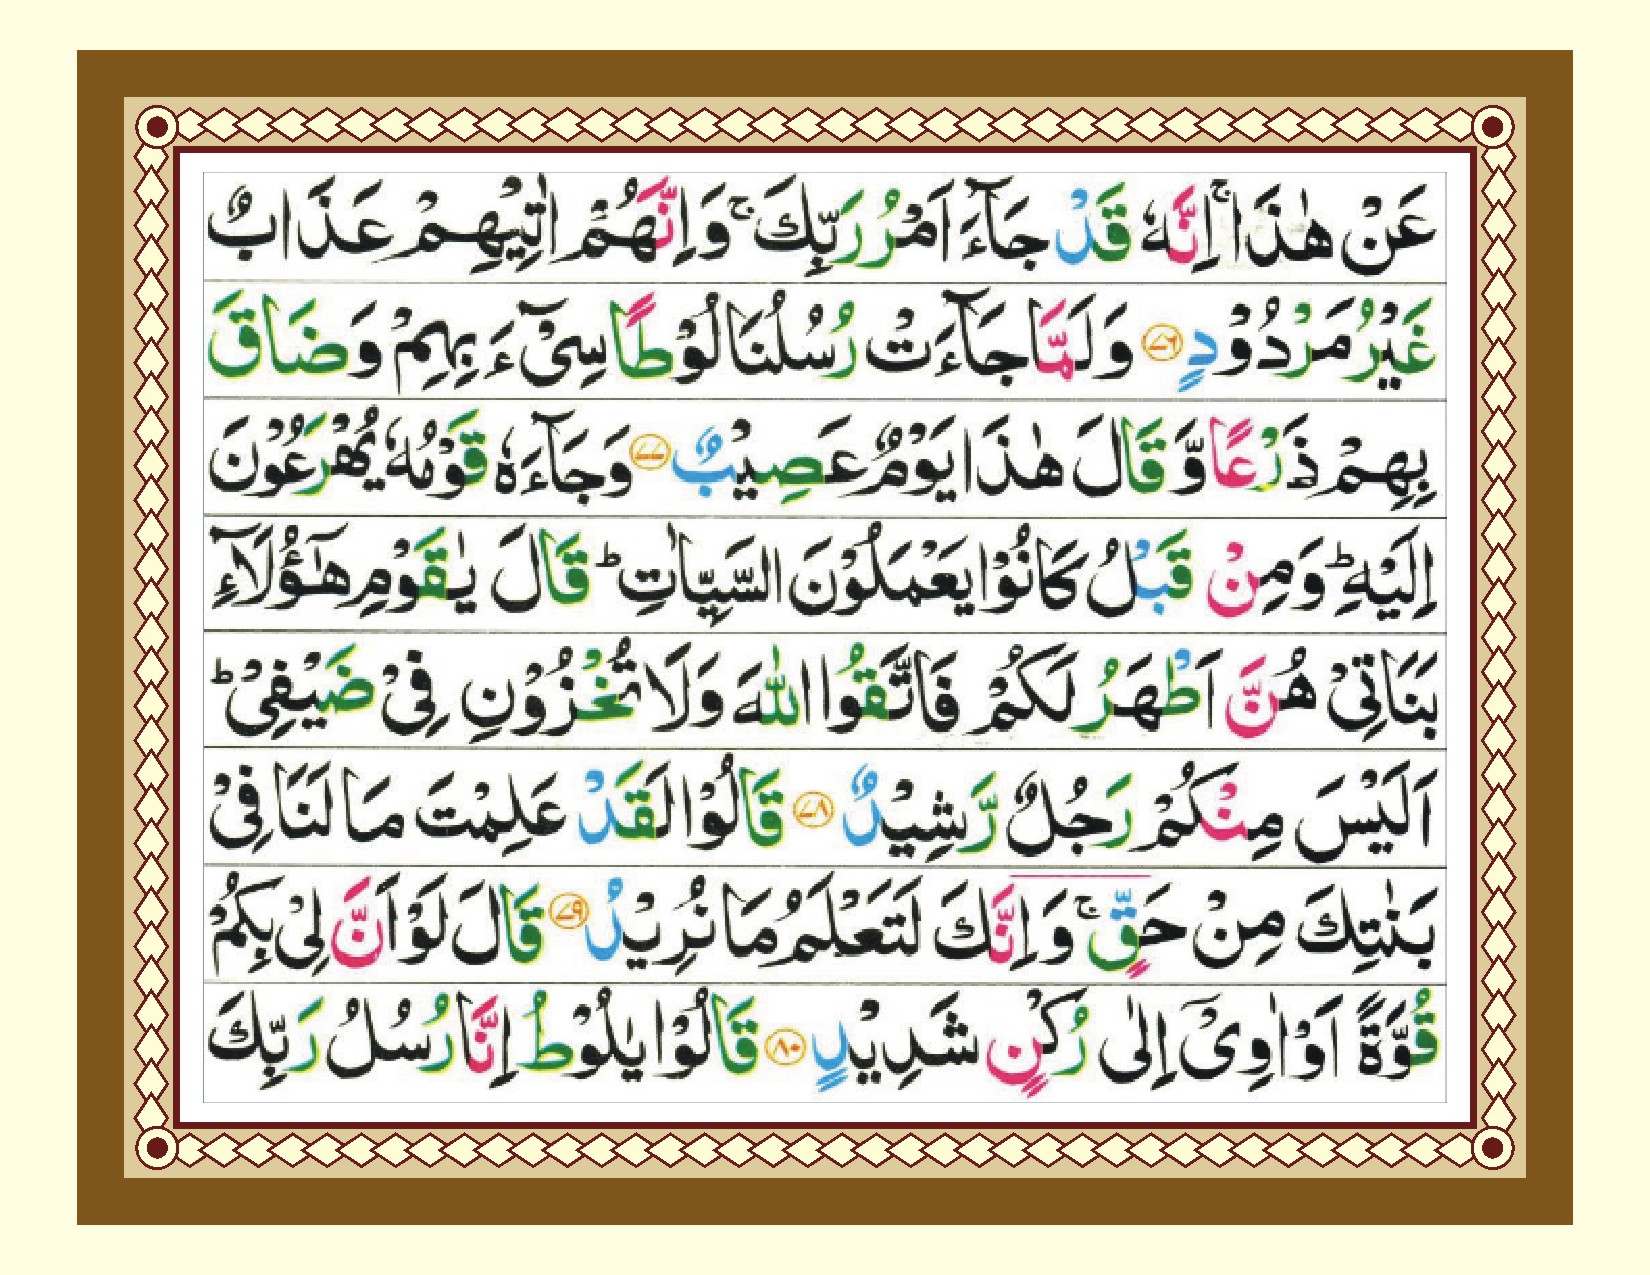 عَنْ هٰذَا ۚ اِنَّهٗ قَدْ جَآءَ اَمْرُ رَبِّكَ ۚ وَاِنَّهُمْ اٰتِيْهِمْ عَذَابٌ
غَيْرُ مَرْدُوْدٍ ﴿۷۶﴾ وَلَمَّا جَآءَتْ رُسُلُنَا لُوْطًا سِیْٓءَ بِهِمْ وَضَاقَ
بِهِمْ ذَرْعًا وَّقَالَ هٰذَا يَوْمٌ عَصِيْبٌ ﴿۷۷﴾ وَجَآءَهٗ قَوْمُهٗ يُهْرَعُوْنَ
اِلَيْهِ ؕ وَمِنْ قَبْلُ كَانُوْا يَعْمَلُوْنَ السَّيِّاٰتِ ؕ قَالَ يٰقَوْمِ هٰٓؤُلَآءِ
بَنَاتِیْ هُنَّ اَطْهَرُ لَكُمْ فَاتَّقُوا اللّٰهَ وَلَا تُخْزُوْنِ فِیْ ضَيْفِیْ ؕ
اَلَيْسَ مِنْكُمْ رَجُلٌ رَّشِيْدٌ ﴿۷۸﴾ قَالُوْا لَقَدْ عَلِمْتَ مَا لَنَا فِیْ
بَنٰتِكَ مِنْ حَقٍّ ۚ وَاِنَّكَ لَتَعْلَمُ مَا نُرِيْدُ ﴿۷۹﴾ قَالَ لَوْ اَنَّ لِیْ بِكُمْ
قُوَّةً اَوْ اٰوِیْٓ اِلٰی رُكْنٍ شَدِيْدٍ ﴿۸۰﴾ قَالُوْا يٰلُوْطُ اِنَّا رُسُلُ رَبِّكَ